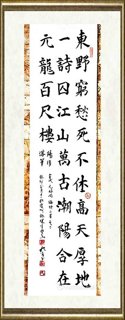 東野窮愁死不休高天厚地
一詩囚江山萬古潮陽合在
元龍百尺樓